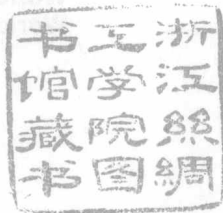 浙江絲綢
工学院图
书馆藏书